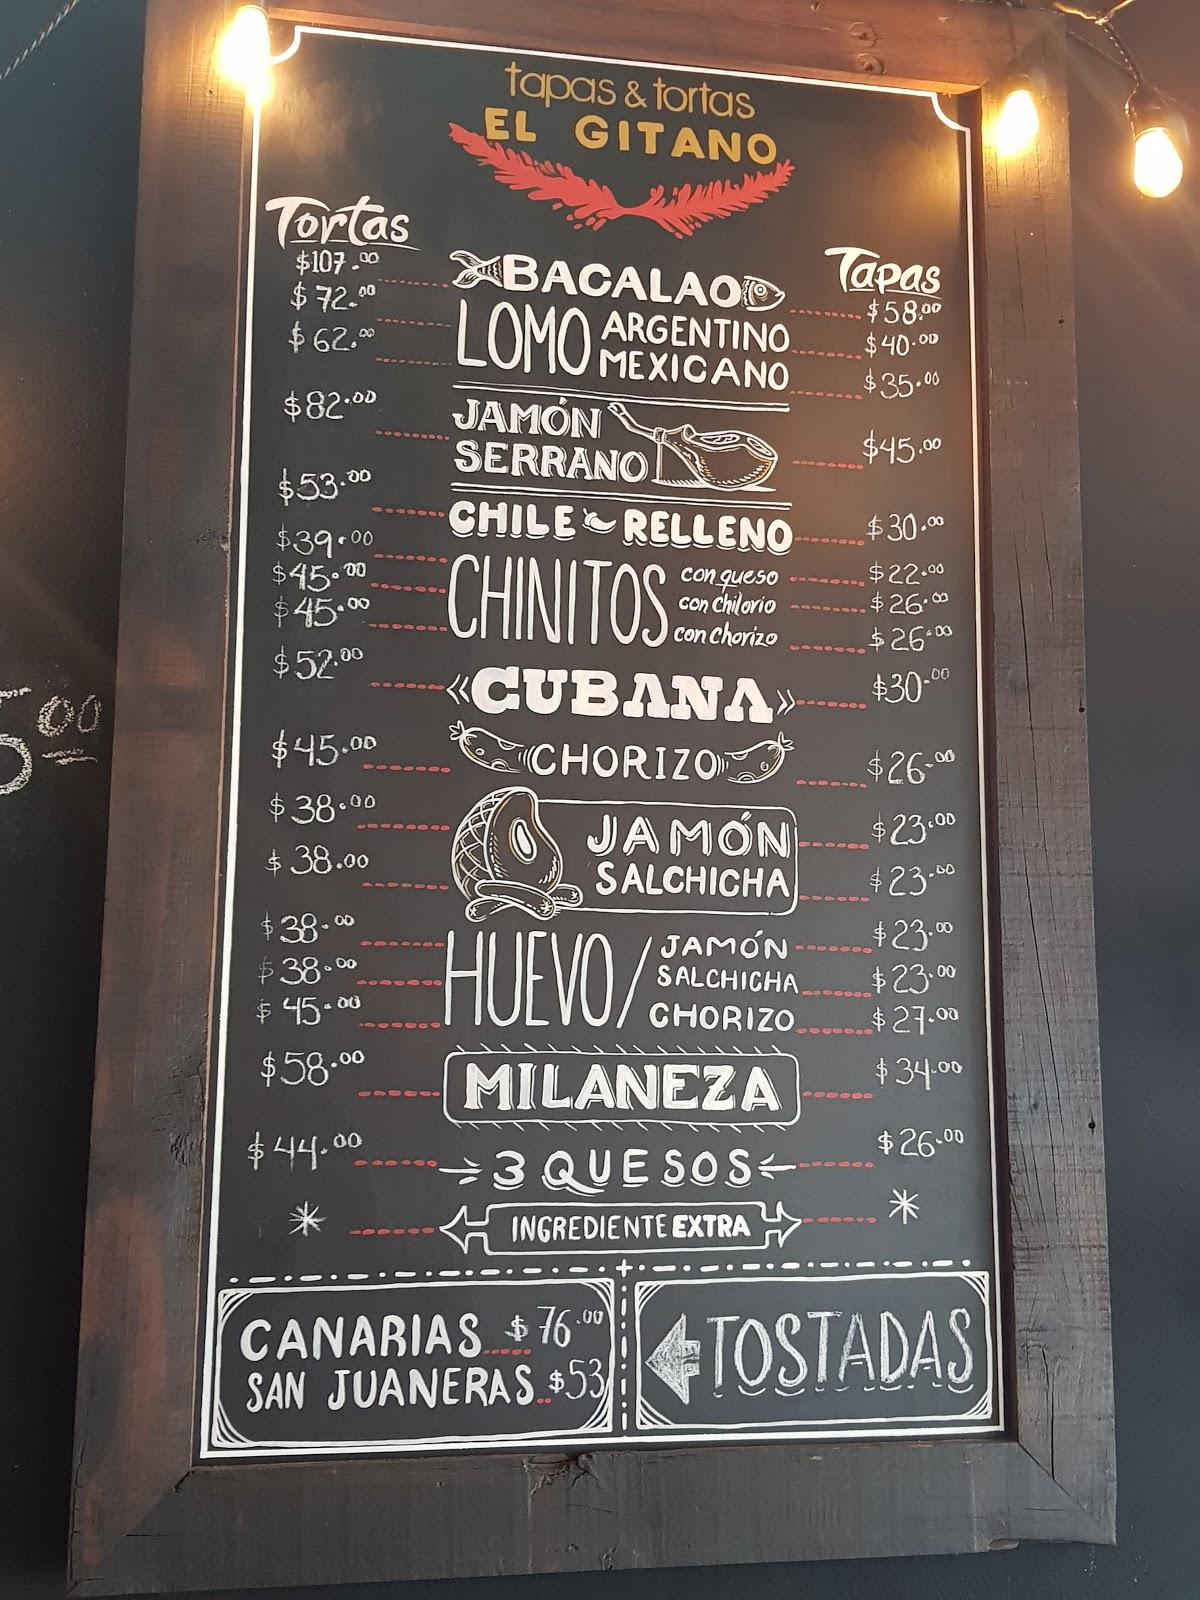 tapas & tortas
EL GITANO
Tortas
Tapas
$107.00 BACALAO $58.00
$72.00 LOMO ARGENTINO $40.00
$62.00 MEXICANO $35.00
$82.00 JAMÓN SERRANO $45.00
$53.00 CHILE RELLENO $30.00
$39.00 CHINITOS con queso $22.00
$45.00 con chilorio $26.00
$45.00 con chorizo $26.00
$52.00 «CUBANA» $30.00
$45.00 CHORIZO $26.00
$38.00 JAMÓN $23.00
$38.00 SALCHICHA $23.00
$38.00 HUEVO / JAMÓN $23.00
$38.00 SALCHICHA $23.00
$45.00 CHORIZO $27.00
$58.00 MILANEZA $34.00
$44.00 3 QUESOS $26.00
* INGREDIENTE EXTRA *
CANARIAS $76.00
SAN JUANERAS $53
TOSTADAS
5.00